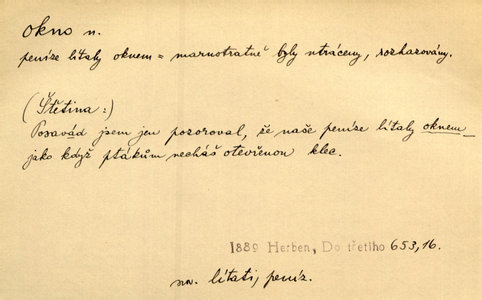 okno n.
peníze lítaly oknem = marnotratně byly utráceny, rozhazovány.
(Štětina:)
Posavád jsem jen pozoroval, že naše peníze lítaly oknem
jako když ptákům necháš otevřenou klec.
1889 Herben, Do třetího 653,16.
sv. lítati, peníz.